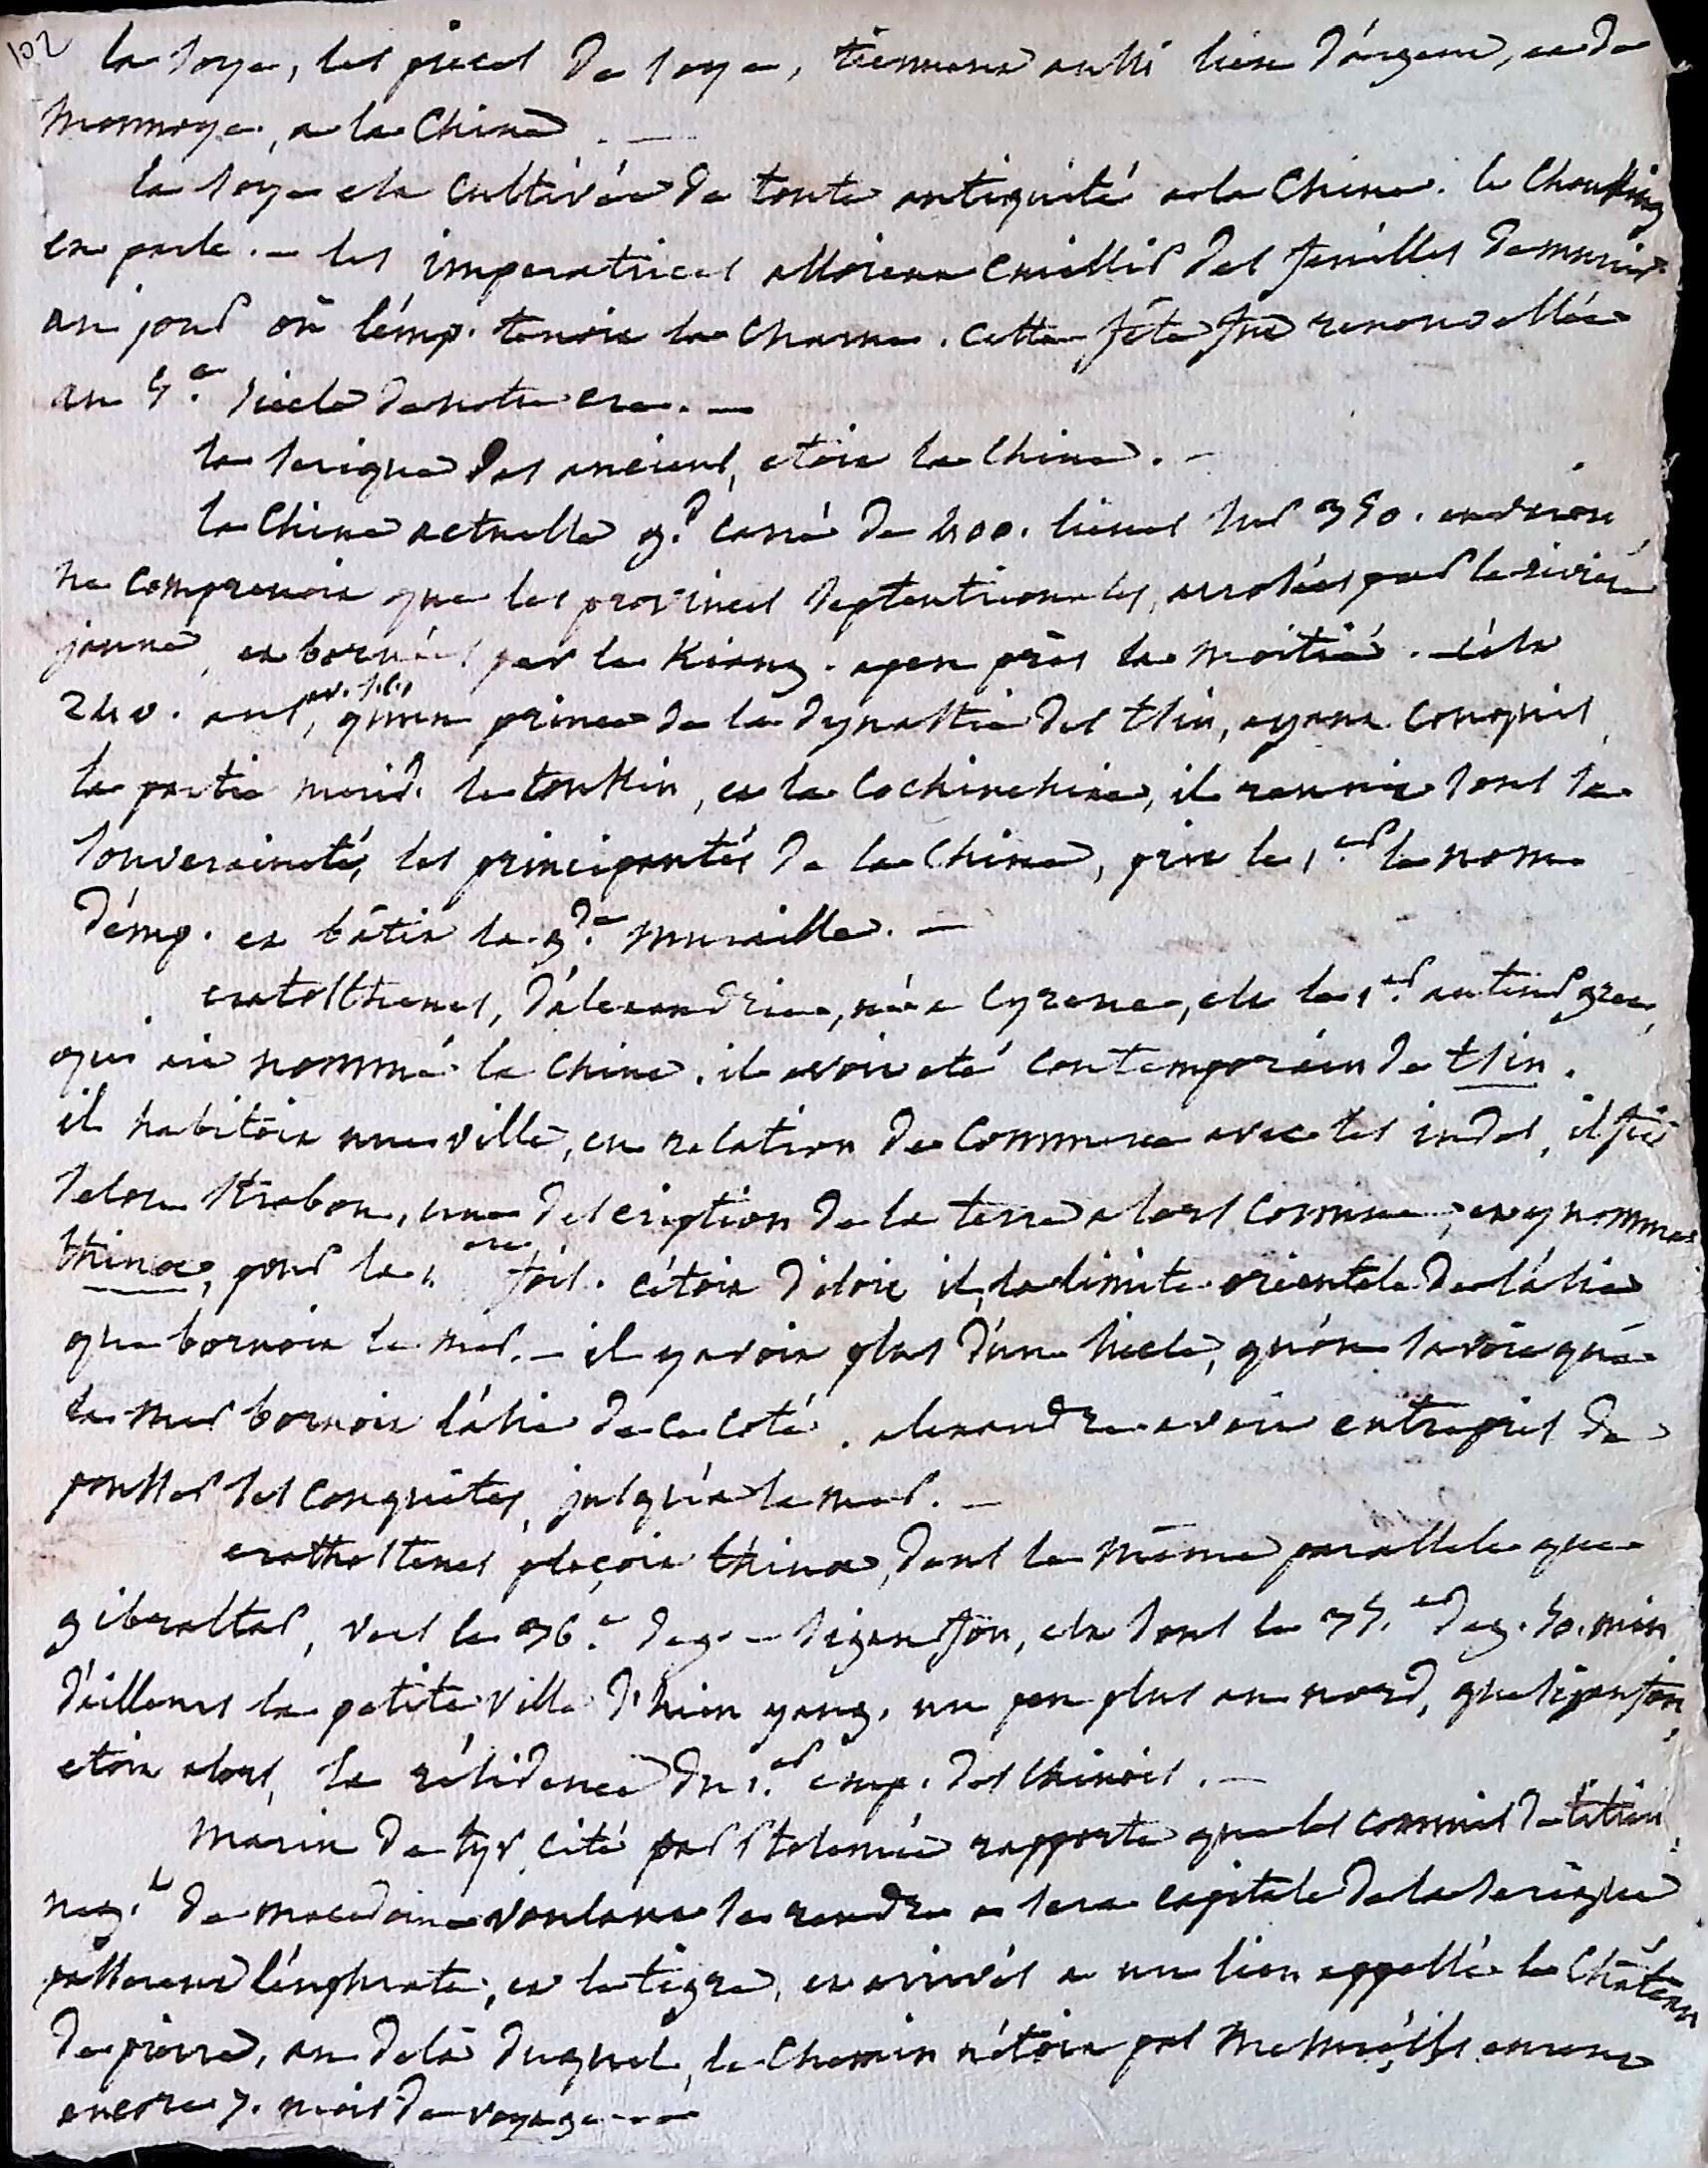 102
la soye, les pièces de soye, tiennent aussi lieu d'argent, et de
monnoye, a la Chine. —
la soye est cultivée de toute antiquité a la Chine. le Chouking
en parle. — les imperatrices alloient cueillir des feuilles de murier
au jour où l'emp. tenoit la charue. cette fête fut renouvellée
au 5.e siecle de notre ere. —
la serique des anciens, etoit la Chine. —
la Chine actuelle g.d carré de 400. lieues sur 350. environ
ne comprenoit que les provinces septentrionales, arrosées par la riviére
jaune, et bornées par le Kiang. apeu près la moitié. — c'est
240. ans, av. J.C. qu'un prince de la dynastie des tsin, ayant conquis,
la partie merid. le tonkin, et la Cochinchine, il reunit sous sa
souveraineté, les principautés de la Chine, prit le 1.er le nom
d'emp. et bâtit la g.de muraille. —
eratosthenes, d'alexandrie, né a Cyrene, est le 1.er auteur grec,
qui ait nommé la Chine. il avoit eté contemporain de tsin.
il habitoit une ville, en relation de commerce avec les indes, il fit
selon Strabon, une description de la terre alors connue, et y nomma
thinæ, pour la 1.ere fois. c'étoit disoit il, la limite orientale de l'asie
que bornoit la mer. — il y avoit plus d'un siecle, qu'on savoit que
la mer bornoit l'asie de ce coté. alexandre avoit entrepris de
pousser ses conquêtes, jusqu'a la mer. —
erathostenes plaçoit thinæ, dans le même parallele que
gibraltar, vers le 36.e deg. — siganfou, est sous le 35.e deg. 50. min
d'ailleurs la petite ville d'hien yang, un peu plus au nord, que siganfou,
etoit alors, la résidence du 1.er emp. des thinois. —
Marin de tyr, cité par Ptolemée rapporte que les commis de titien
neg.t de macedoine voulant se rendre a sera capitale de la serique
passerent l'euphrate, et le tigre, et arrivés a un lieu appellé le Château
de pierre, au delà duquel, le chemin n'étoit pas mesuré, ils eurent
encore 7. mois de voyage. —